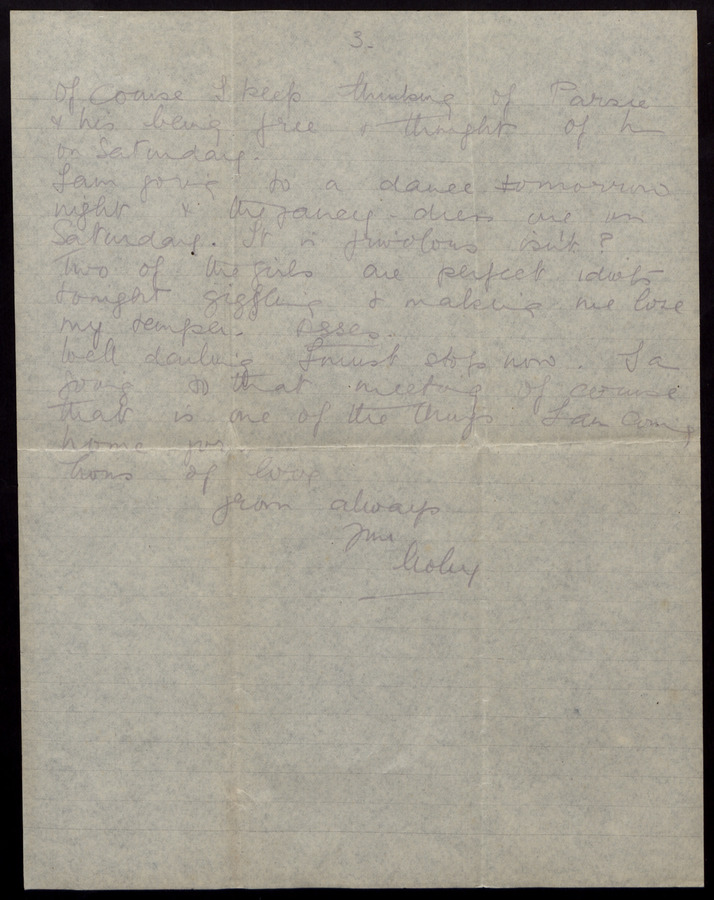 3.
Of course I keep thinking of Parsie
& his being free & thought of h
on Saturday.
I am going to a dance tomorrow
night & the fancy-dress one on
Saturday. It is frivolous isn't?
Two of the girls are perfect idiots
tonight giggling & making me lose
my temper. Asses.
Well darling I must stop now. I a
going to that meeting of course
that is one of the things I am coming
home for
Tons of love
from always